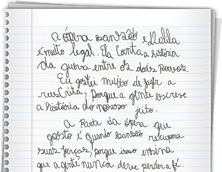 a ópera sansão e dalila
é muito legal. Ela conta a história
da guerra entre os dois povos.
Eu gostei muito de fazer a
reescrita, porque a gente escreve
a história do nosso jeito.
A Parte da ópera que
gostei é quando sansão recupera
suas forças, porque isso ensina
que a gente nunca deve perder a fé